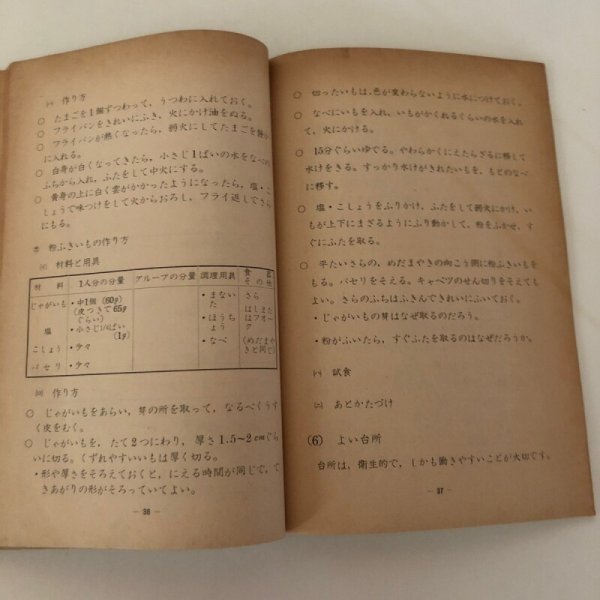 (ハ) 作り方
○ たまごを1個ずつわって, うつわに入れておく。
○ フライパンをきれいにふき, 火にかけ油をぬる。
○ フライパンが熱くなったら, 弱火にしてたまごを静か
に入れる。
○ 白身が白くなってきたら, 小さじ1ぱいの水をなべの
ふちから入れ, ふたをして中火にする。
○ 黄身の上に白く雲がかかったようになったら, 塩・こ
しょうで味つけをして火からおろし, フライ返しでさら
にもる。
粉ふきいもの作り方
(イ) 材料と用具
材料 1人分の分量 グループの分量 調理用具 食器その他
じゃがいも ・中1個(60g) (皮つきで65gぐらい) ・まないた さら
塩 ・小さじ1/6ぱい(1g) ・ほうちょう はしまたはフォーク
こしょう ・少々 ・なべ (めだまやきと同じ)
パセリ ・少々
(ロ) 作り方
○ じゃがいもをあらい, 芽の所を取って, なるべくうす
く皮をむく。
○ じゃがいもを, たて2つにわり, 厚さ1.5~2cmぐら
いに切る。くずれやすいいもは厚く切る。
・形や厚さをそろえておくと, にえる時間が同じで, で
きあがりの形がそろっていてよい。
— 36 —
○ 切ったいもは, 色が変わらないように水につけておく。
○ なべにいもを入れ, いもがかくれるくらいの水を入れ
て, 火にかける。
○ 15分ぐらいゆでる。やわらかくにえたらざるに移して
水けをきる。すっかり水けがきれたいもを, もとのなべ
に移す。
○ 塩・こしょうをふりかけ, ふたをして弱火にかけ, い
もが上下にまざるようにふり動かして, 粉をふかせ, す
ぐにふたを取る。
○ 平たいさらの, めだまやきの向こう側に粉ふきいもを
もる。パセリをそえる。キャベツのせん切りをそえても
よい。さらのふちはふきんできれいにふいておく。
・じゃがいもの芽はなぜ取るのだろう。
・粉がふいたら, すぐふたを取るのはなぜだろうか。
(ハ) 試食
(ニ) あとかたづけ
(6) よい台所
台所は, 衛生的で, しかも働きやすいことが大切です。
— 37 —